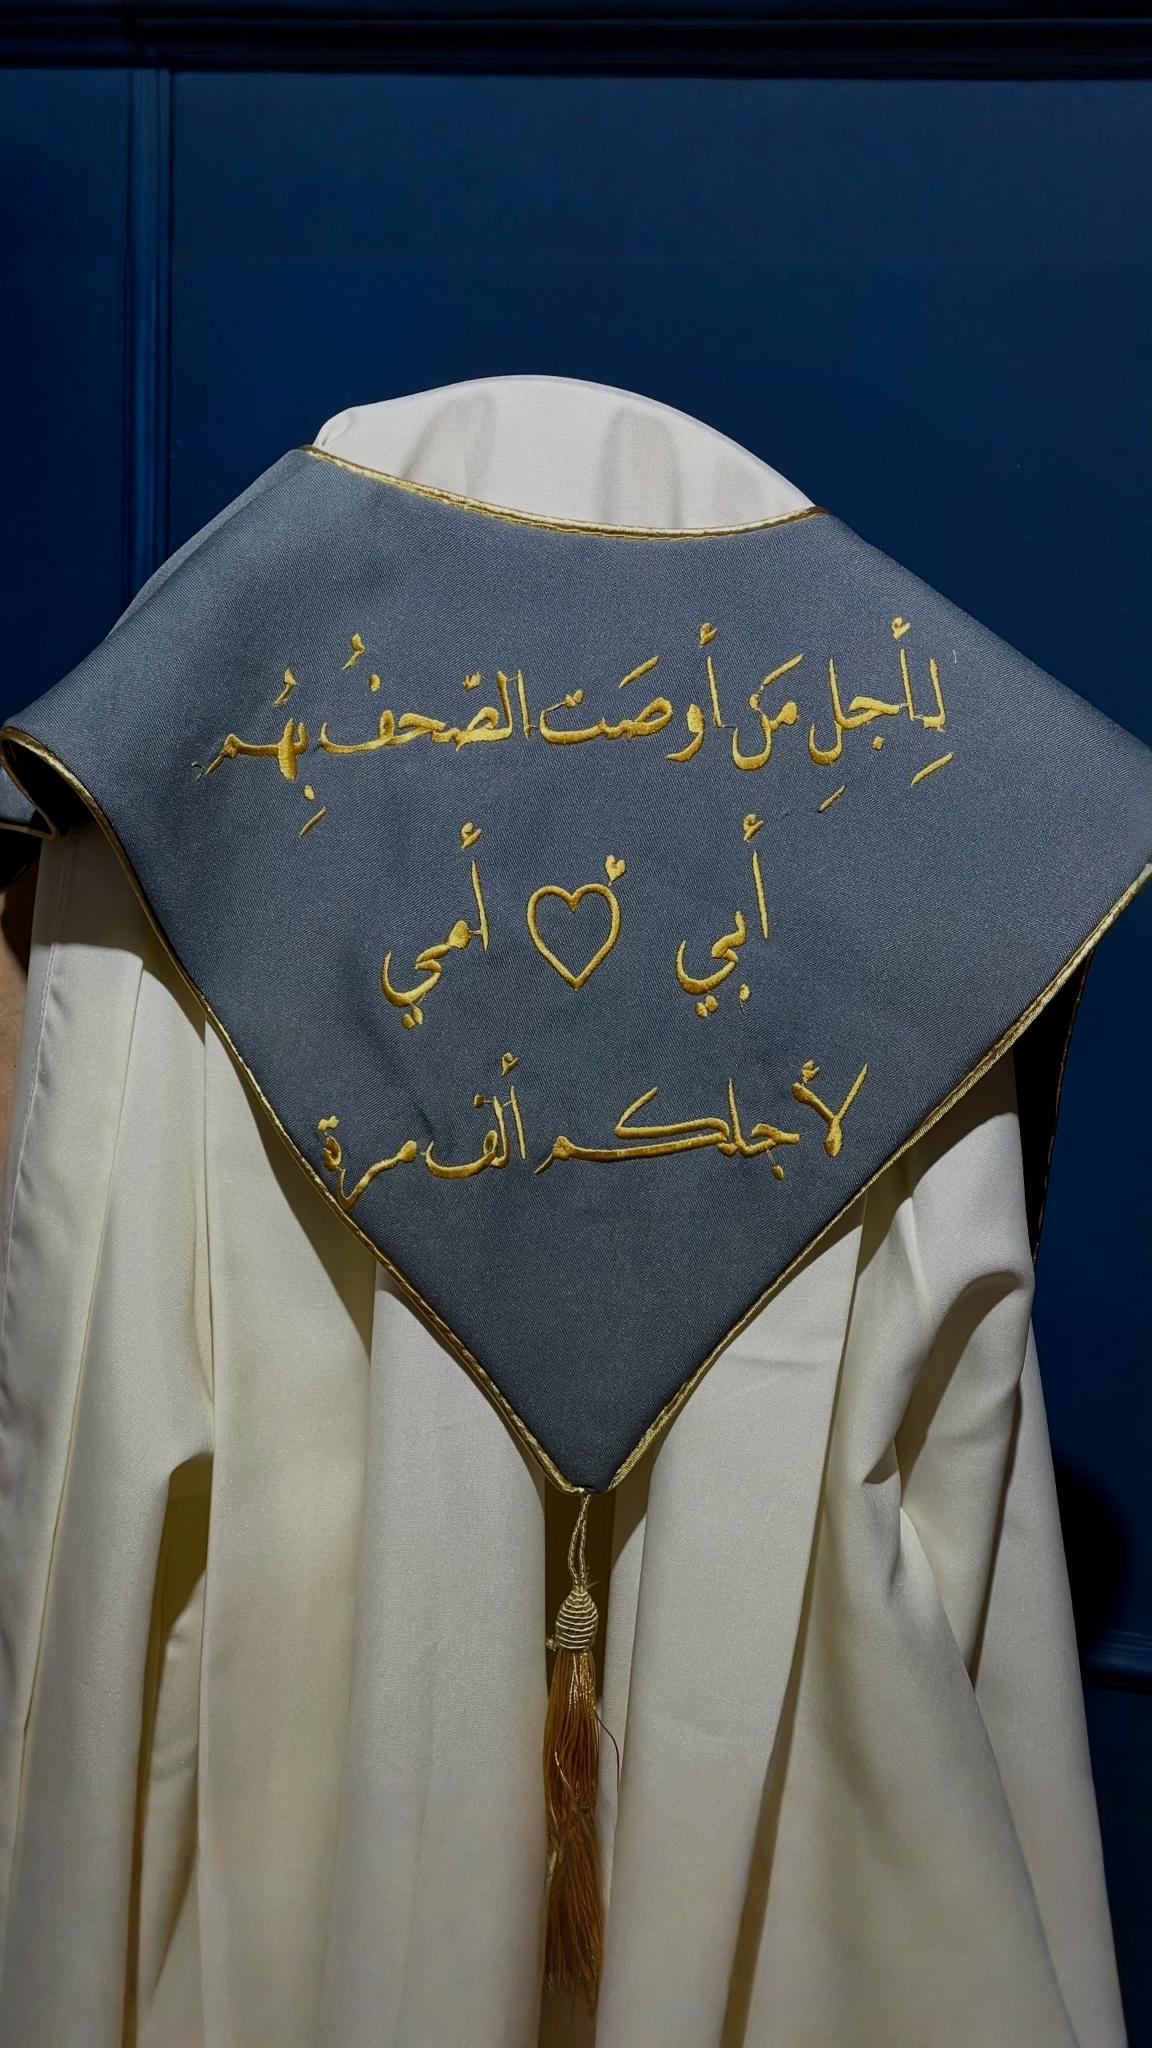 لِأجلِ مَن أوصَت الصّحفُ بِهُم
أبي ♡ أمي
لأجلكم ألف مرة